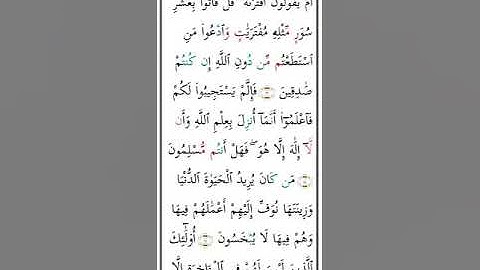 أَمْ يَقُولُونَ ٱفْتَرَىٰهُ قُلْ فَأْتُوا۟ بِعَشْرِ
سُوَرٍ مِّثْلِهِۦ مُفْتَرَيَٰتٍ وَٱدْعُوا۟ مَنِ
ٱسْتَطَعْتُم مِّن دُونِ ٱللَّهِ إِن كُنتُمْ
صَٰدِقِينَ ۝ فَإِلَّمْ يَسْتَجِيبُوا۟ لَكُمْ
فَٱعْلَمُوٓا۟ أَنَّمَآ أُنزِلَ بِعِلْمِ ٱللَّهِ وَأَن
لَّآ إِلَٰهَ إِلَّا هُوَ ۖ فَهَلْ أَنتُم مُّسْلِمُونَ
۝ مَن كَانَ يُرِيدُ ٱلْحَيَوٰةَ ٱلدُّنْيَا
وَزِينَتَهَا نُوَفِّ إِلَيْهِمْ أَعْمَٰلَهُمْ فِيهَا
وَهُمْ فِيهَا لَا يُبْخَسُونَ ۝ أُو۟لَٰٓئِكَ
ٱلَّذِينَ لَيْسَ لَهُمْ فِى ٱلْـَٔاخِرَةِ إِلَّا